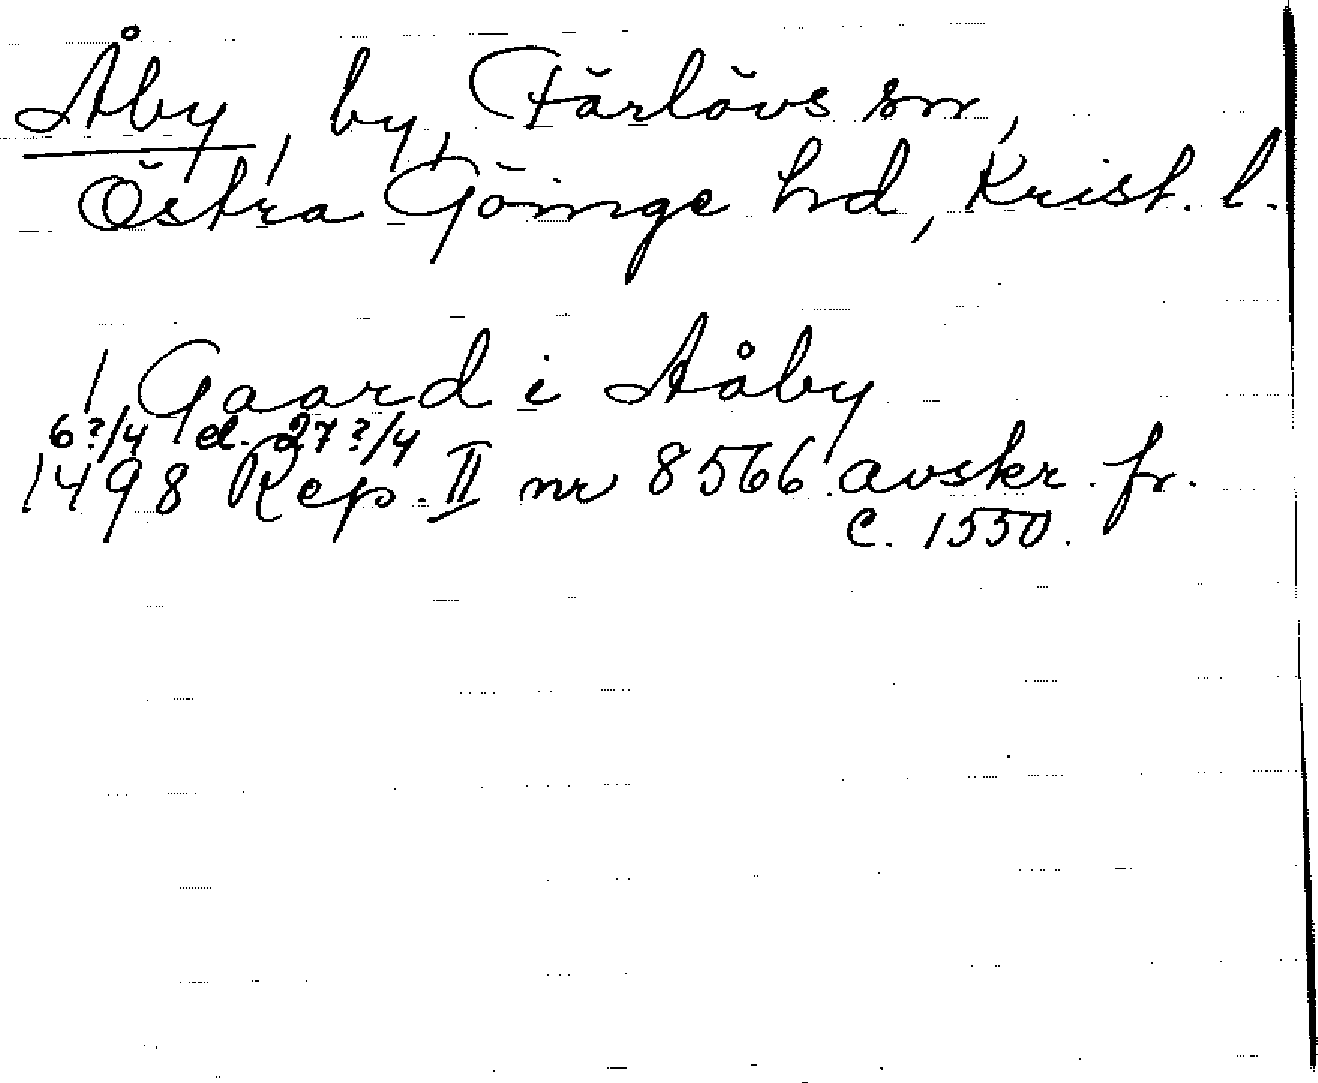 Åby, by, Färlövs sn,
Östra Göinge hd, Krist. l.
1 Gaard i Aåby
6?/4 el. 27?/4
1498 Rep. II nr 8566 avskr. fr.
c. 1550.